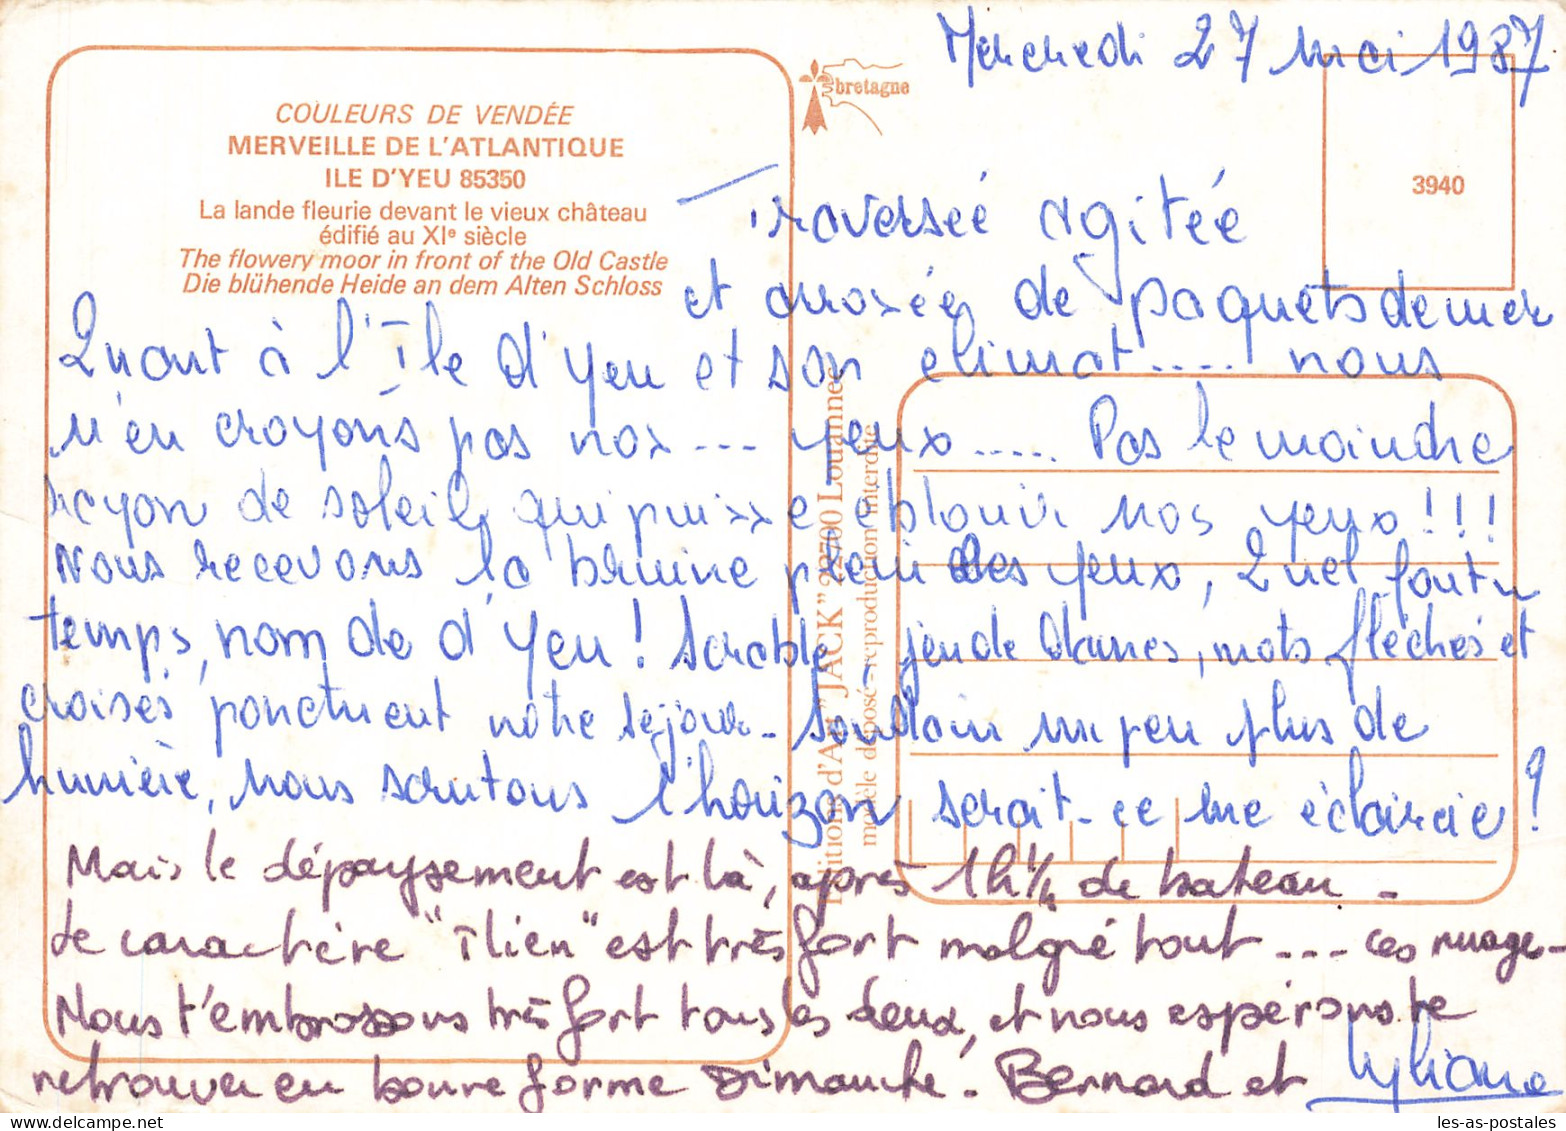 Mercredi 27 mai 1987
bretagne
COULEURS DE VENDÉE
MERVEILLE DE L'ATLANTIQUE
ILE D'YEU 85350
La lande fleurie devant le vieux château
édifié au XIe siècle
The flowery moor in front of the Old Castle
Die blühende Heide an dem Alten Schloss
3940
Traversée agitée
et arrosée de paquets de mer
Quant à l'Île d'Yeu et son climat..... nous
n'en croyons pas nos --- yeux ..... Pas le moindre
rayon de soleil qui puisse éblouir nos yeux !!!
Nous recevons la bruine plein les yeux, Quel foutu
temps, nom de d'Yeu ! Scrable, jeu de dames, mots fléchés et
croisés ponctuent notre séjour - Soudain un peu plus de
lumière, nous scrutons l'horizon serait-ce une éclaircie ?
Mais le dépaysement est là, après 1h 1/4 de bateau -
Le caractère "îlien" est très fort malgré tout --- ces nuages -
Nous t'embrassons très fort tous les deux, et nous espérons te
retrouver en bonne forme Dimanche. Bernard et Lyliane
Editions d'Art "JACK" 22700 Louannec
modèle déposé - reproduction interdite
les-as-postales